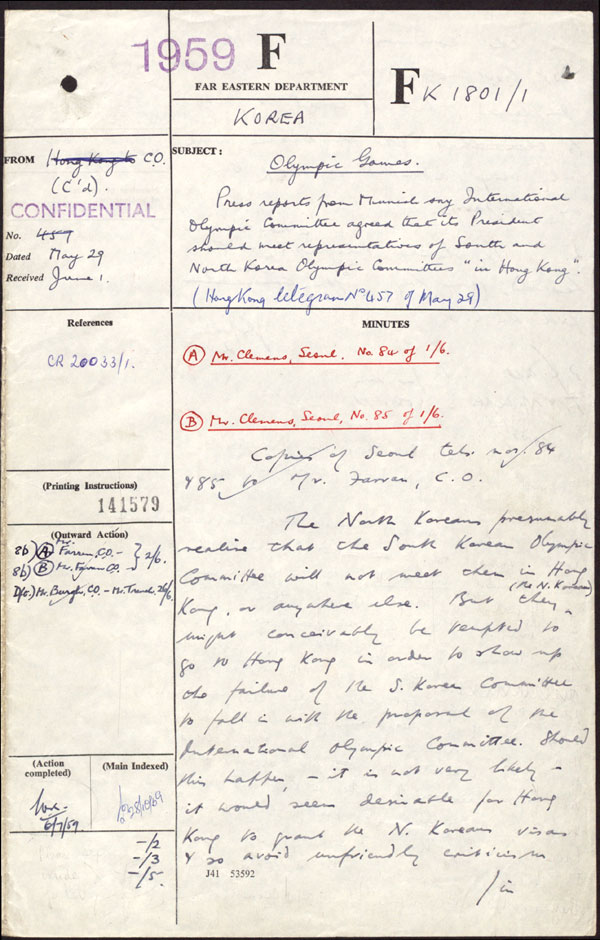 1959 F
FAR EASTERN DEPARTMENT
KOREA
FK 1801/1
FROM Hong Kong to C.O.
(C'd).
CONFIDENTIAL
No. 457
Dated May 29
Received June 1.
SUBJECT:
Olympic Games.
Press reports from Munich say International
Olympic Committee agreed that its President
should meet representatives of South and
North Korea Olympic Committees "in Hong Kong".
(Hong Kong telegram No 457 of May 29)
References
CR 20033/1.
(Printing Instructions)
141579
(Outward Action)
8b) (A) Mr. Farran, C.O. -
8b) (B) Mr. C.O. } 2/6.
D/o.) Mr. Burgh, C.O. - Mr. 26/6
(Action
completed)
6/7/59.
(Main Indexed)
-/2
-/3
-/5.
MINUTES
(A) Mr. Clemens, Seoul. No. 84 of 1/6.
(B) Mr. Clemens, Seoul, No. 85 of 1/6.
Copies of Seoul tels. nos. 84
& 85 to Mr. Farran, C.O.
The North Koreans presumably
realise that the South Korean Olympic
Committee will not meet them in Hong
Kong, or anywhere else. But they (the N. Koreans)
might conceivably be tempted to
go to Hong Kong in order to show up
the failure of the S. Korean Committee
to fall in with the proposal of the
International Olympic Committee. Should
this happen, - it is not very likely -
it would seem desirable for Hong
Kong to grant the N. Koreans visas
& so avoid unfriendly criticism
/in
J41 53592